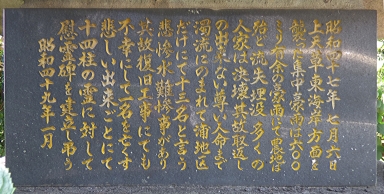 昭和四十七年七月六日
上天草東海岸方面を
襲た集中豪雨は六〇〇
ミリ有余の豪雨にて田地は
殆ど流失埋没多くの
人家は決壊其故取返し
の出来ない尊い人命まで
濁流にのまれて浦地区
だけにて十三名と言う
悲惨水難惨事があり
其故復旧工事にても
不幸にして一名をなくす
悲しい出来ごとにて
十四柱の霊に対して
慰霊碑を建立し弔う
昭和四十九年一月